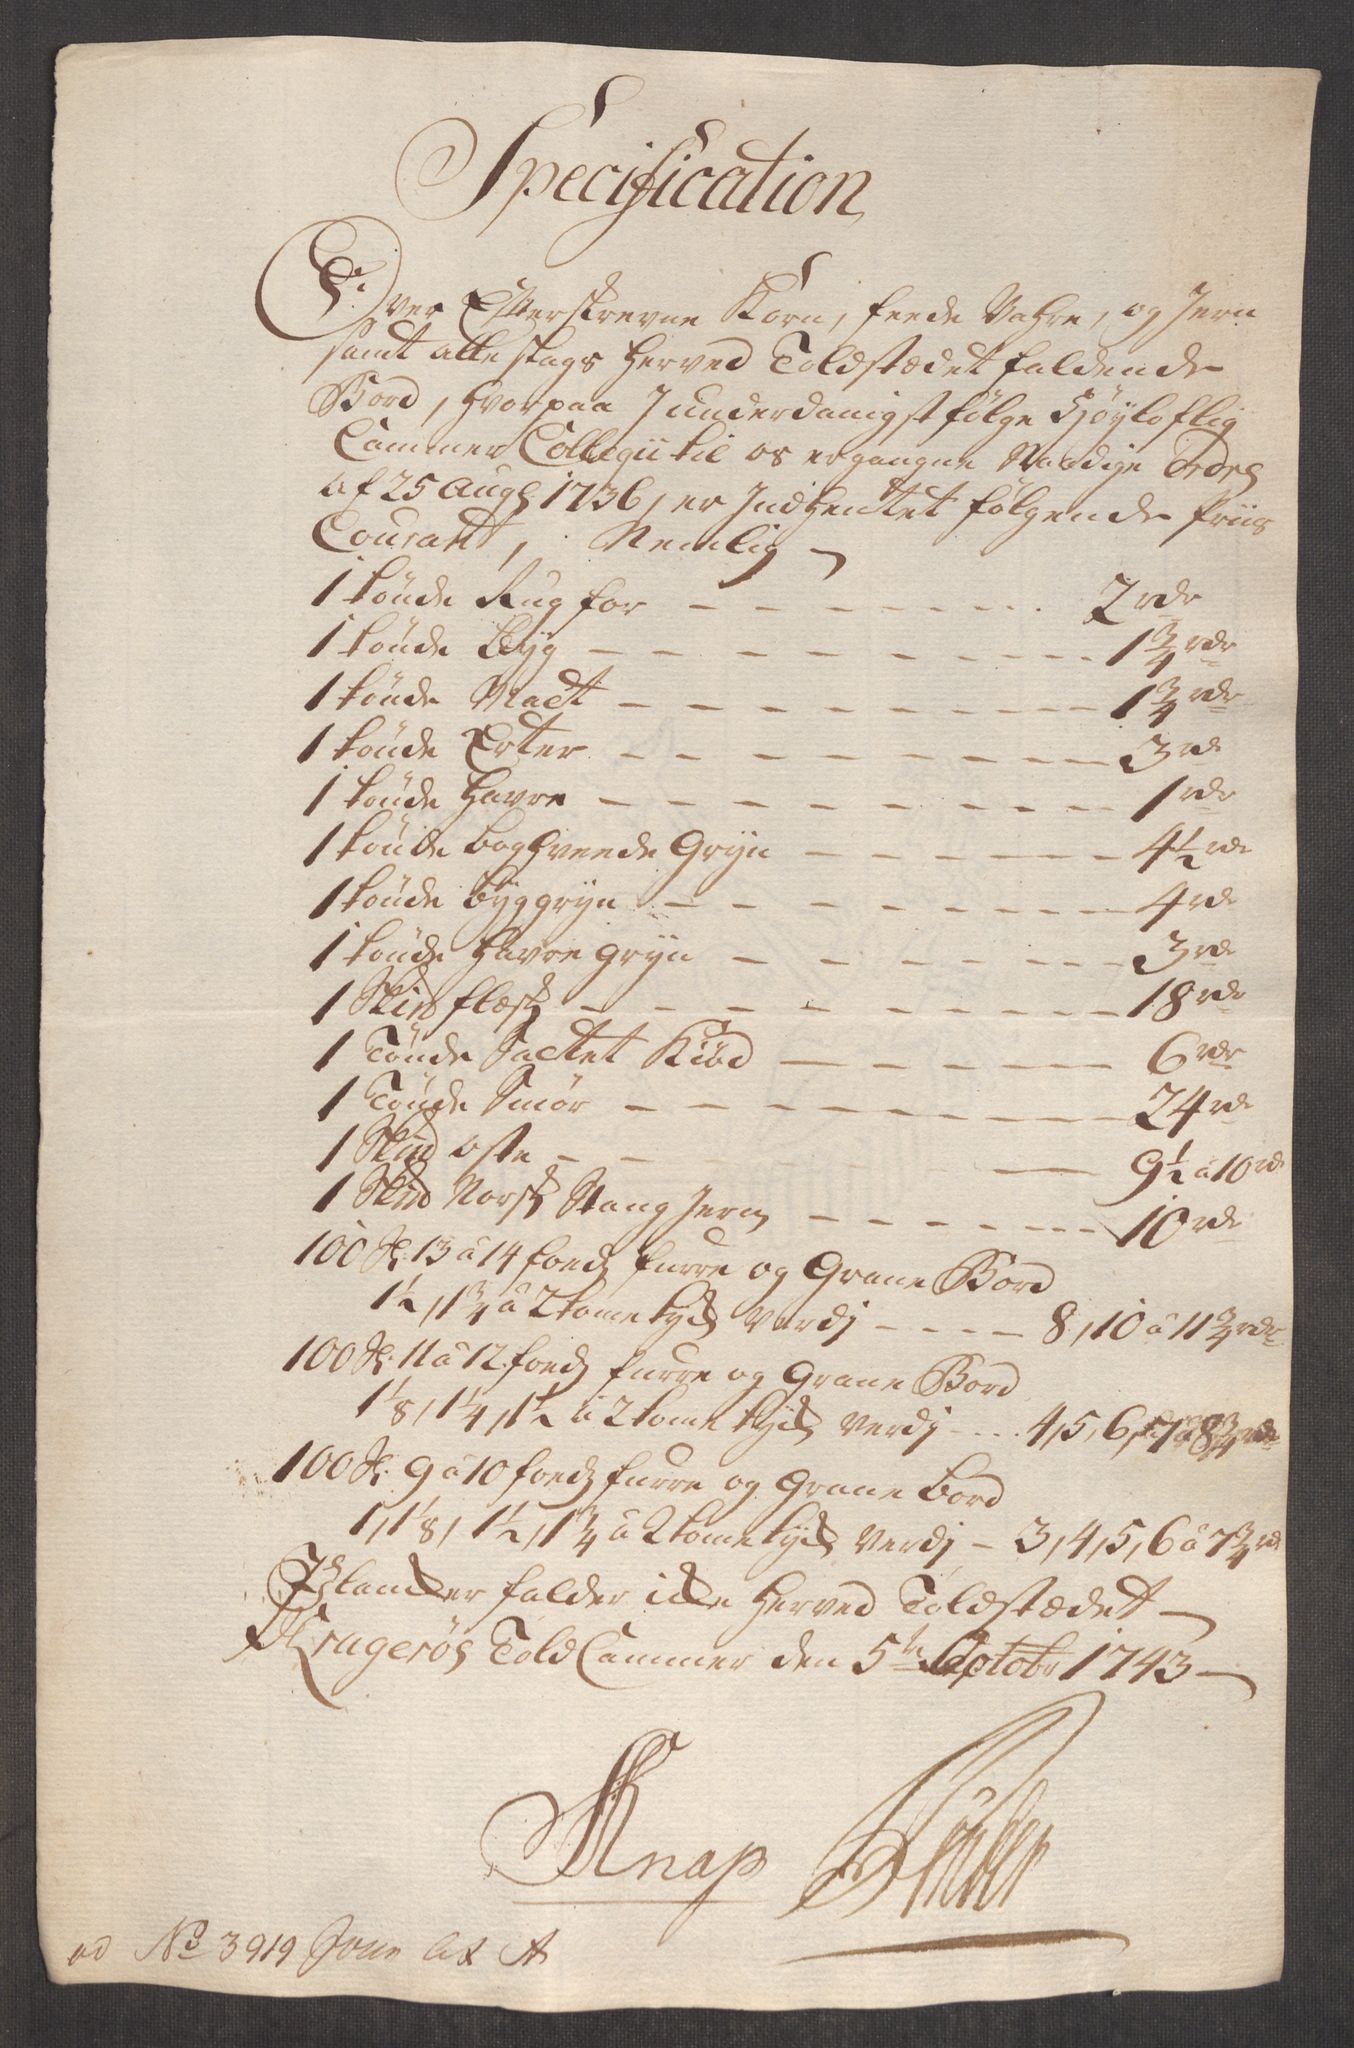 Specification
Over Efterskrevne Korn, feede Vahre, og Jern
samt alle slags herved Toldstædet faldende
Bord, hvorpaa J underdanigst følge Høyloflig
Cammer Collegii til os ergangne Naadige Ordre
af 25 Aug: 1736, er Jndhentet følgende Priis
Courant, Nemlig
1 tönde Rug for - - - - - - - 2 rdr
1 tönde Byg - - - - - - - - 1 3/4 rdr
1 tönde Malt - - - - - - - - 1 3/4 rdr
1 tönde Erter - - - - - - - - 3 rdr
1 tönde Havre - - - - - - - - 1 rdr
1 tönde boghveede Gryn - - - - - 4 1/2 rdr
1 tönde byggryn - - - - - - - 4 rdr
1 tönde Havre gryn - - - - - - 3 rdr
1 Skpd flæsk - - - - - - - - 18 rdr
1 Tönde Saltet Kiöd - - - - - 6 rdr
1 Tönde Smör - - - - - - - - 24 rdr
1 Skpd oste - - - - - - 9 1/2 â 10 rdr
1 Skpd Norsk Stang Jern - - - - - 10 rdr
100 St: 13 â 14 foeds furre og Grane Bord
1 1/2, 1 3/4 â 2 tome tyk Verdj - - - - 8, 10 â 11 3/4 rdr
100 St: 11 â 12 foeds furre og Grane Bord
1 1/8, 1 1/4, 1 1/2 â 2 tome tyk Verdj - - - 4, 5, 6, 7 â 8 3/4 rdr
100 St: 9 â 10 foeds furre og Grane bord
1, 1 1/8, 1 1/2, 1 3/4 â 2 tome tyk Verdj - 3, 4, 5, 6 â 7 3/4 rdr
Planker falder icke herved Toldstædet
Kragerös Told Cammer den 5te Octobr 1743
Knap
ad No 3919 Jour A